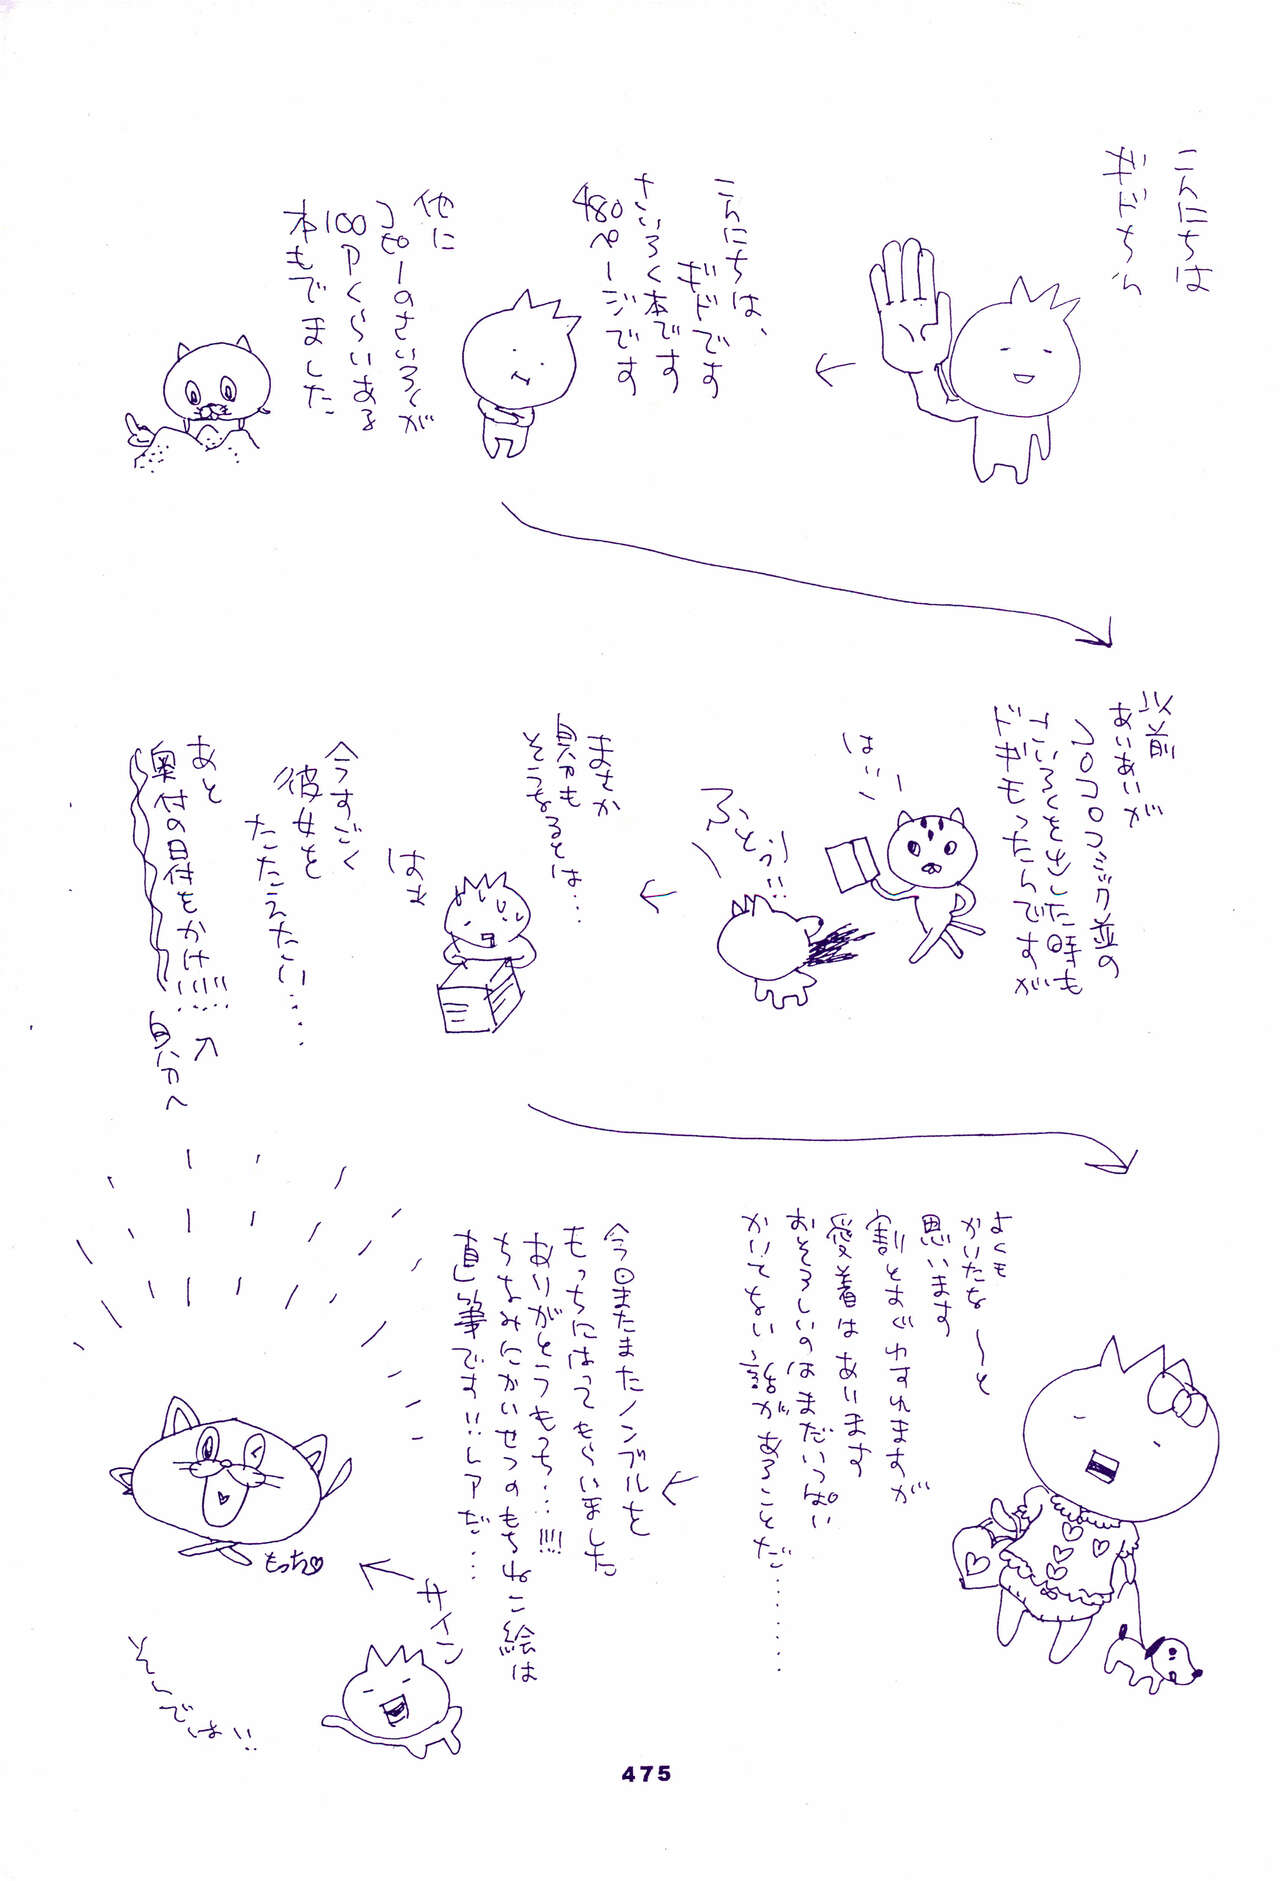 こんにちは
ギドちん
こんにちは、
ギドです
さいろく本です
480ページです
他に
コピーのさいろくが
100Pくらいある
本もでました
以前
あいあいが
コロコロコミック並の
さいろくを出した時も
ドギモぬったんですが
はい
ふとう!!
まさか
自分も
そうなるとは…
はぁ
今すごく
彼女を
たたえたい……
あと
奥付の日付をかけ!!!!…
自分へ
よくも
かいたな〜と
思います
割とすぐわすれますが
愛着はあります
おそろしいのはまだいっぱい
かいてない話があることだ………
今回またまたノンブルを
もっちにはってもらいました
ありがとうもっち…!!!!
ちなみにかいせつのもちねこ絵は
直筆です!!レアだ…
もっち♡
サイン
そーでは!!
475